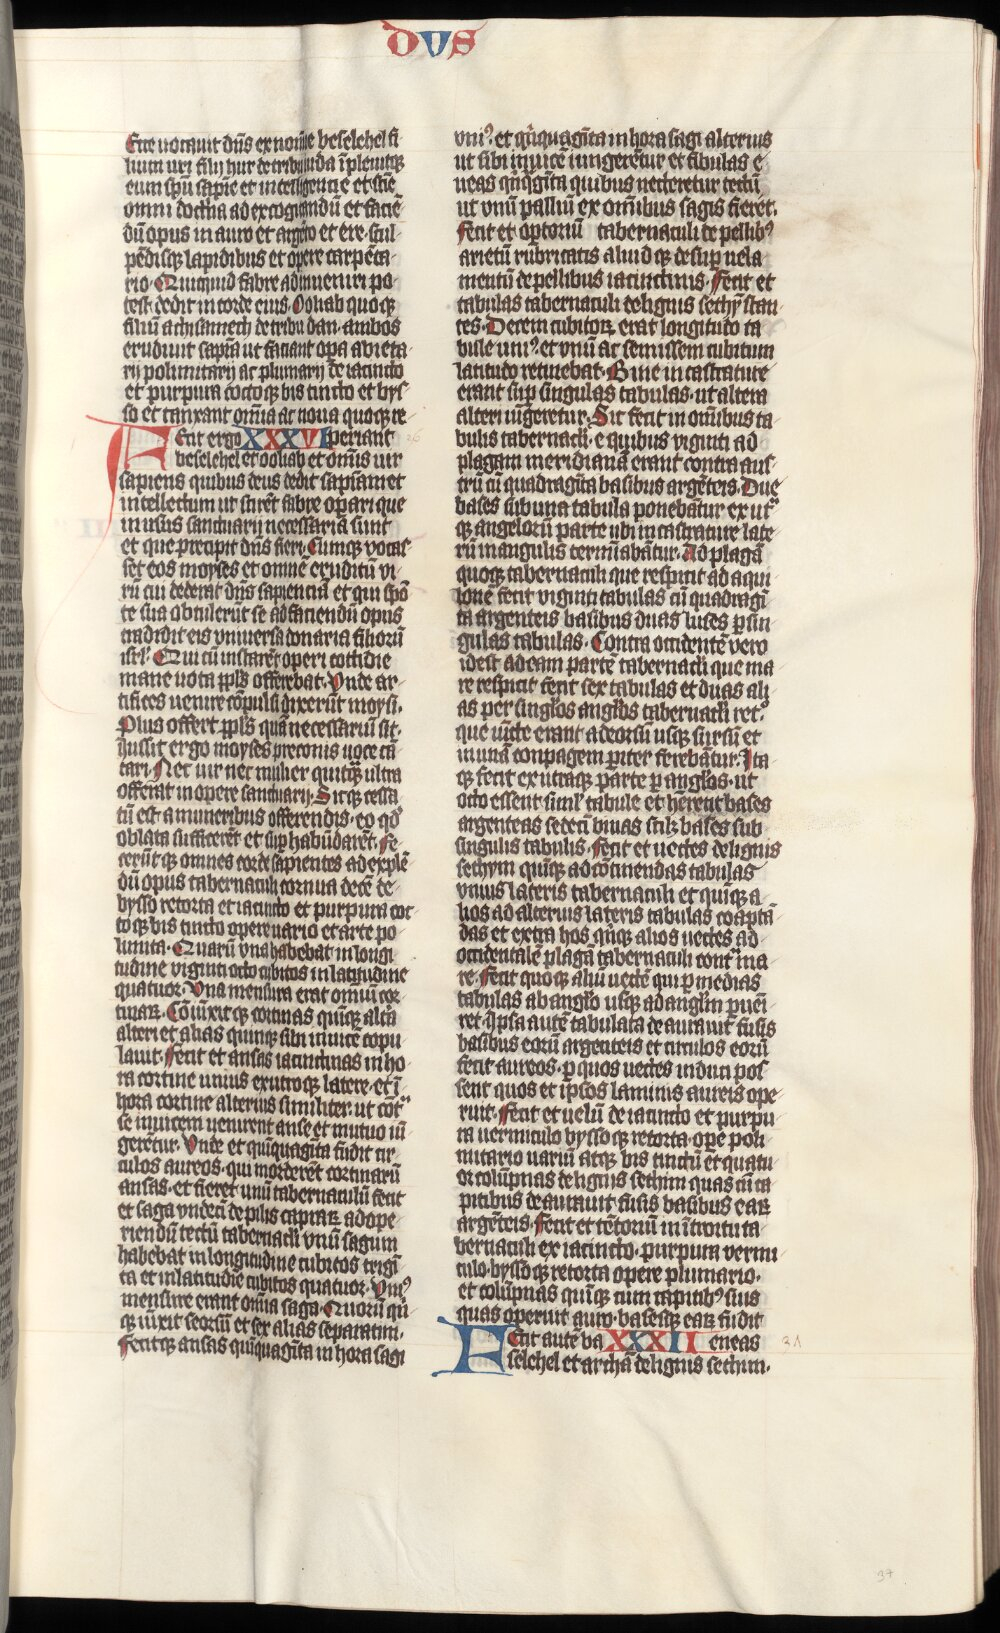 dus
Ecce uocauit dn̄s ex nomīe beselehel fi
lium uri filij hur de tribu iuda īpleuitqꝫ
eum spū sapiē et intelligentie et sciē
omni doctrīa ad excogitandū et faciē
dū opus in auro et argēto et ere scul
pēdisqꝫ lapidibus et opere carpēta
rio. Quicquid fabre adinueniri po
test. dedit in corde eius. Ooliab quoqꝫ
filiū achisamech de tribu dan. ambos
erudiuit sapīa ut faciant opa abieta
rij polimitarij ac plumarij de iacincto
et purpura coccoqꝫ bis tincto et bys
so et texant omīa ac noua quoqꝫ re
Fecit ergo XXXVI periant
beselehel et ooliab et omīs uir
sapiens quibus deus dedit sapīam et
intellectum ut scirēt fabre opari que
in usus sanctuarij necessaria sunt
et que precipit dn̄s fieri. Cumqꝫ vocas
set eos moyses et omne eruditū vi
rū cui dederat dn̄s sapienciā et qui spō
te sua obtulerūt se ad faciendū opus
tradidit eis vniuersa donaria filiorū
isrl'. Qui cū instarēt operi cottidie
mane uota ppl̄s offerebat. Vnde ar
tifices uenire cōpulsi dixerūt moysi.
Plus offert ppl̄s quā necessariū sit.
Iussit ergo moyses preconis uoce cā
tari. Nec uir nec mulier quitqꝫ ultra
offerat in opere sanctuarij. Sicqꝫ cessa
tū est a muneribus offerendis. eo qd̓
oblata sufficerēt et suphabūdarēt. Fe
cerūtqꝫ omnes corde sapientes ad explē
dū opus tabernaculi cortinas decē de
bysso retorta et iacincto et purpura coc
coqꝫ bis tincto opere uario et arte po
limita. Quarū vna habebat in longi
tudine viginti octo cubitos in latitudine
quatuor. Vna mensura erat omniū cor
tinarꝫ. Cōiūxitqꝫ cortinas quīqꝫ altā
alteri et alias quinqꝫ sibi inuicē copu
lauit. Fecit et ansas iacinctinas in ho
ra cortine unius ex utroqꝫ latere. et ī
hora cortine alterius similiter. ut cōt
se inuicem uenirent anse et mutuo iū
gerētur. Vnde et quīquagīta fudit cir
culos aureos. qui morderēt cortinarū
ansas. et fieret unū tabernaculū fecit
et saga vndecī de pilis caprarꝫ ad ope
riendū tectū tabernacłi vnū sagum
habebat in longitudine cubitos trigī
ta et in latitudīe cubitos quatuor. Vniꝰ
mensure erant omīa saga. Quorū quī
qꝫ iūxit seorsū et sex alias separatim.
Fecitqꝫ ansas quīquagīta in hora sagi
vniꝰ et quīquagīta in hora sagi alterius
ut sibi inuicē iungerētur et fibulas e
neas quīqgīta quibus necteretur tectū
ut vnū palliū ex omībus sagis fieret.
Fecit et optoriū tabernaculi de pellibꝰ
arietū rubricatis aliudqꝫ desup uela
mentū de pellibus iacinctinis. Fecit et
tabulas tabernaculi de lignis sethym stan
tes. Decem cubitorꝫ erat longitudo ta
bule uniꝰ et vnū ac semissem cubitum
latitudo retinebat. Bine incastrature
erant sup singulas tabulas. ut altera
alteri iūgeretur. Sic fecit in omībus ta
bulis tabernacłi. e quibus viginti ad
plagam meridianā erant contra aus
trū cū quadragīta basibus argēteis. Due
bases sub una tabula ponebātur ex ut
qꝫ angelorū parte ubi incastrature late
rū in angulis termīabātur. Ad plagā
quoqꝫ tabernaculi que respicit ad aqui
lonē fecit viginti tabulas cū quadragī
ta argenteis basibus duas bases p sin
gulas tabulas. Contra occidentē vero
idest ad eam partē tabernacłi que ma
re respicit fecit sex tabulas et duas ali
as per singłos angłos tabernacłi retꝰ
que iūcte erant a deorsū usqꝫ sursū et
in unā conpagem piter ferebātur. Ita
qꝫ fecit ex utraqꝫ parte p angłos. ut
octo essent simł tabule et hērent bases
argenteas sedecī binas scilꝫ bases sub
singulis tabulis. Fecit et uectes de lignis
sethym quīqꝫ ad cōtinendas tabulas
vnius lateris tabernaculi et quīqꝫ a
lios ad alterius lateris tabulas coaptā
das et extra hos quīqꝫ alios uectes ad
occidentalē plagā tabernaculi contᵃ ma
re. Fecit quoqꝫ aliū uectē qui p medias
tabulas ab angło usqꝫ ad angłm pueī
ret. Ipsa autē tabulata deaurauit fusis
basibus eorū argenteis et circulos eorū
fecit aureos. p quos uectes induci pos
sent quos et ip̄sos laminis aureis ope
ruit. Fecit et uelū de iacincto et purpu
ra uermiculo byssoqꝫ retorta. opē poli
mitario uariū atqꝫ bis tinctū et quatu
or colūpnas de lignis sethim quas cū ca
pitibus deaurauit fusis basibus earꝫ
argēteis. Fecit et tētoriū in introitu ta
bernaculi ex iacincto. purpura vermi
culo. byssoqꝫ retorta opere plumario.
et colūpnas quīqꝫ cum capitibꝰ suis
quas operuit auro. basesqꝫ earꝫ fudit
Fecit autē be XXXVII eneas
selehel et archā de lignis sethim.
26
37